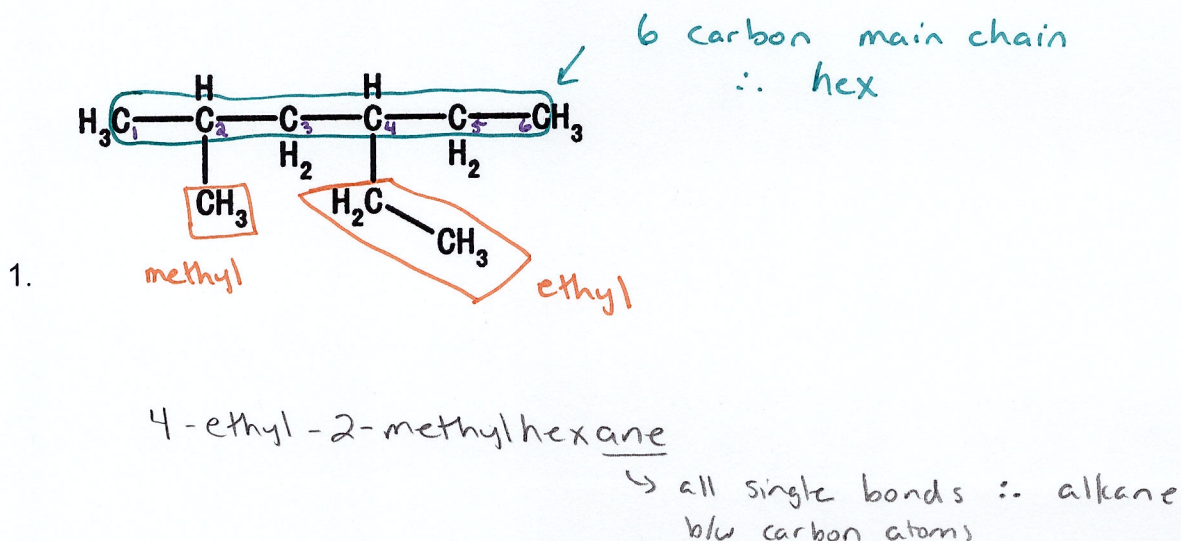 6 carbon main chain
∴ hex
H H
H₃C1 C2 C3 C4 C5 6CH₃
H₂ H₂
CH₃ H₂C
CH₃
1. methyl ethyl
4-ethyl-2-methylhexane
↳ all single bonds ∴ alkane
b/w carbon atoms